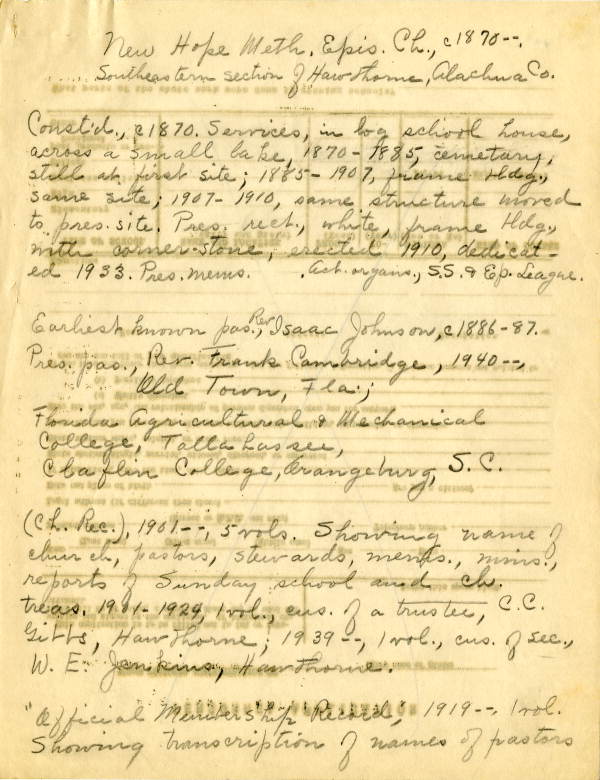 New Hope Meth. Epis. Ch., c1870--.
Southeastern section of Hawthorne, Alachua Co.
Const'd., c1870. Services, in log school house,
across a small lake, 1870-1885, cemetary,
still at first site; 1885-1907, frame bldg.,
same site; 1907-1910, same structure moved
to pres. site. Pres. rect., white, frame bldg.,
with corner-stone, erected 1910, dedicat-
ed 1933. Pres. mems. . Act. organs., S.S. & Ep. League.
Earliest known pas., Rev. Isaac Johnson, c1886-87.
Pres. pas., Rev. Frank Cambridge, 1940--,
Old Town, Fla.;
Florida Agricultural & Mechanical
College, Tallahassee,
Claflin College, Orangeburg, S.C.
(Ch. Rec.), 1901--, 5 vols. Showing name of
church, pastors, stewards, mems., mins.,
reports of Sunday school and ch.
treas. 1901-1929, 1 vol., cus. of a trustee, C.C.
Gibbs, Hawthorne; 1939--, 1 vol., cus. of sec.,
W. E. Jenkins, Hawthorne.
"Official Membership Record," 1919--, 1 vol.
Showing transcription of names of pastors